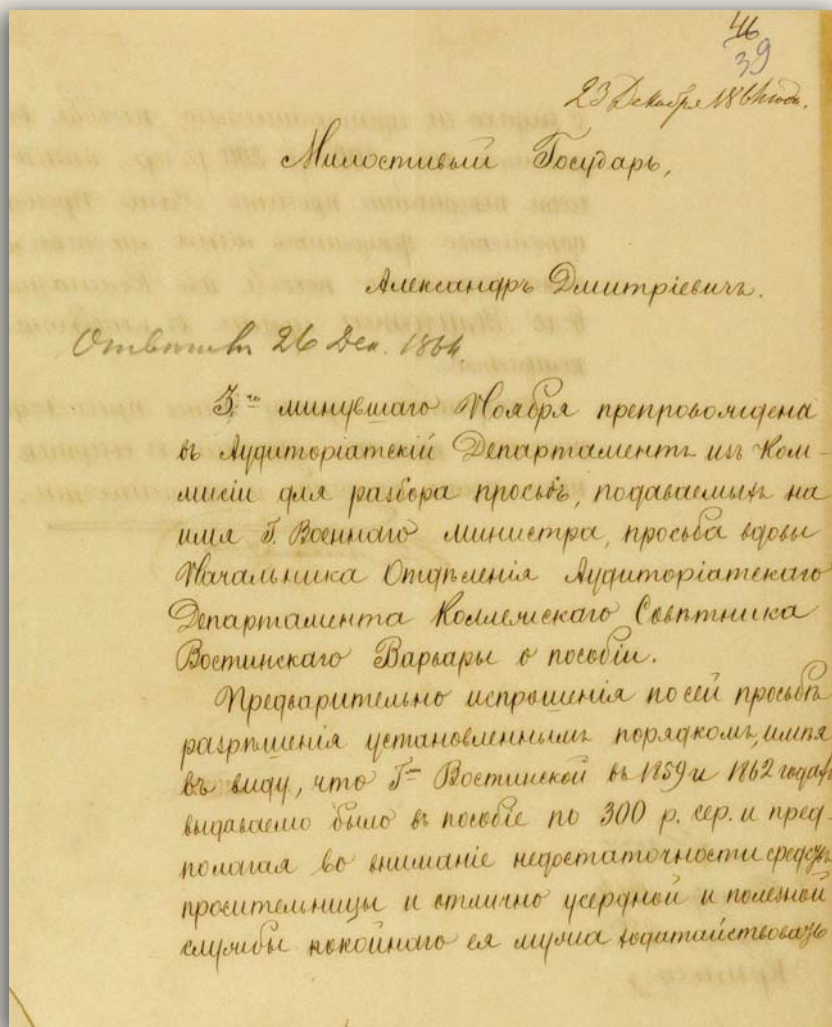 46
39
23 Декабря 1864 года.
Милостивый Государь,
Александръ Дмитріевичъ.
26 Дек. 1864.
минувшаго Ноября препровождена
въ Аудиторіатскій Департаментъ изъ Ком-
мисіи для разбора просьбъ, подаваемыхъ на
имя Г. Военнаго Министра, просьба вдовы
Начальника Отдѣленія Аудиторіатскаго
Департамента Коллежскаго Совѣтника
Востинскаго Варвары о пособіи.
Предварительно испрошенія по сей просьбѣ
разрѣшенія установленнымъ порядкомъ, имѣя
въ виду, что Г-жѣ Востинской въ 1859 и 1862 годахъ
выдаваемо было въ пособіе по 300 р. сер. и пред-
полагая во вниманіе недостаточности средствъ
просительницы и отлично усердной и полезной
службы покойнаго ея мужа ходатайствовать